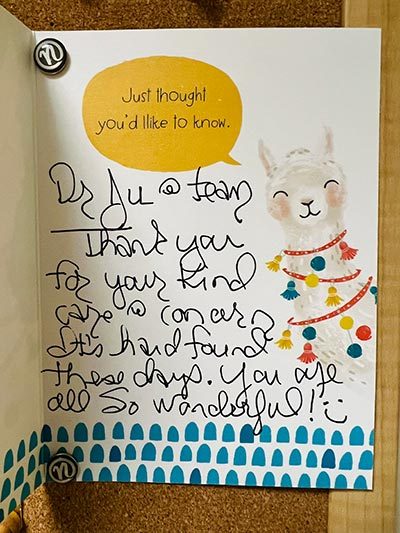 Just thought
you'd llike to know.
Dr Ju @ team
Thank you
for your kind
care @ concern
It's hard found
these days. You are
all so wonderful!